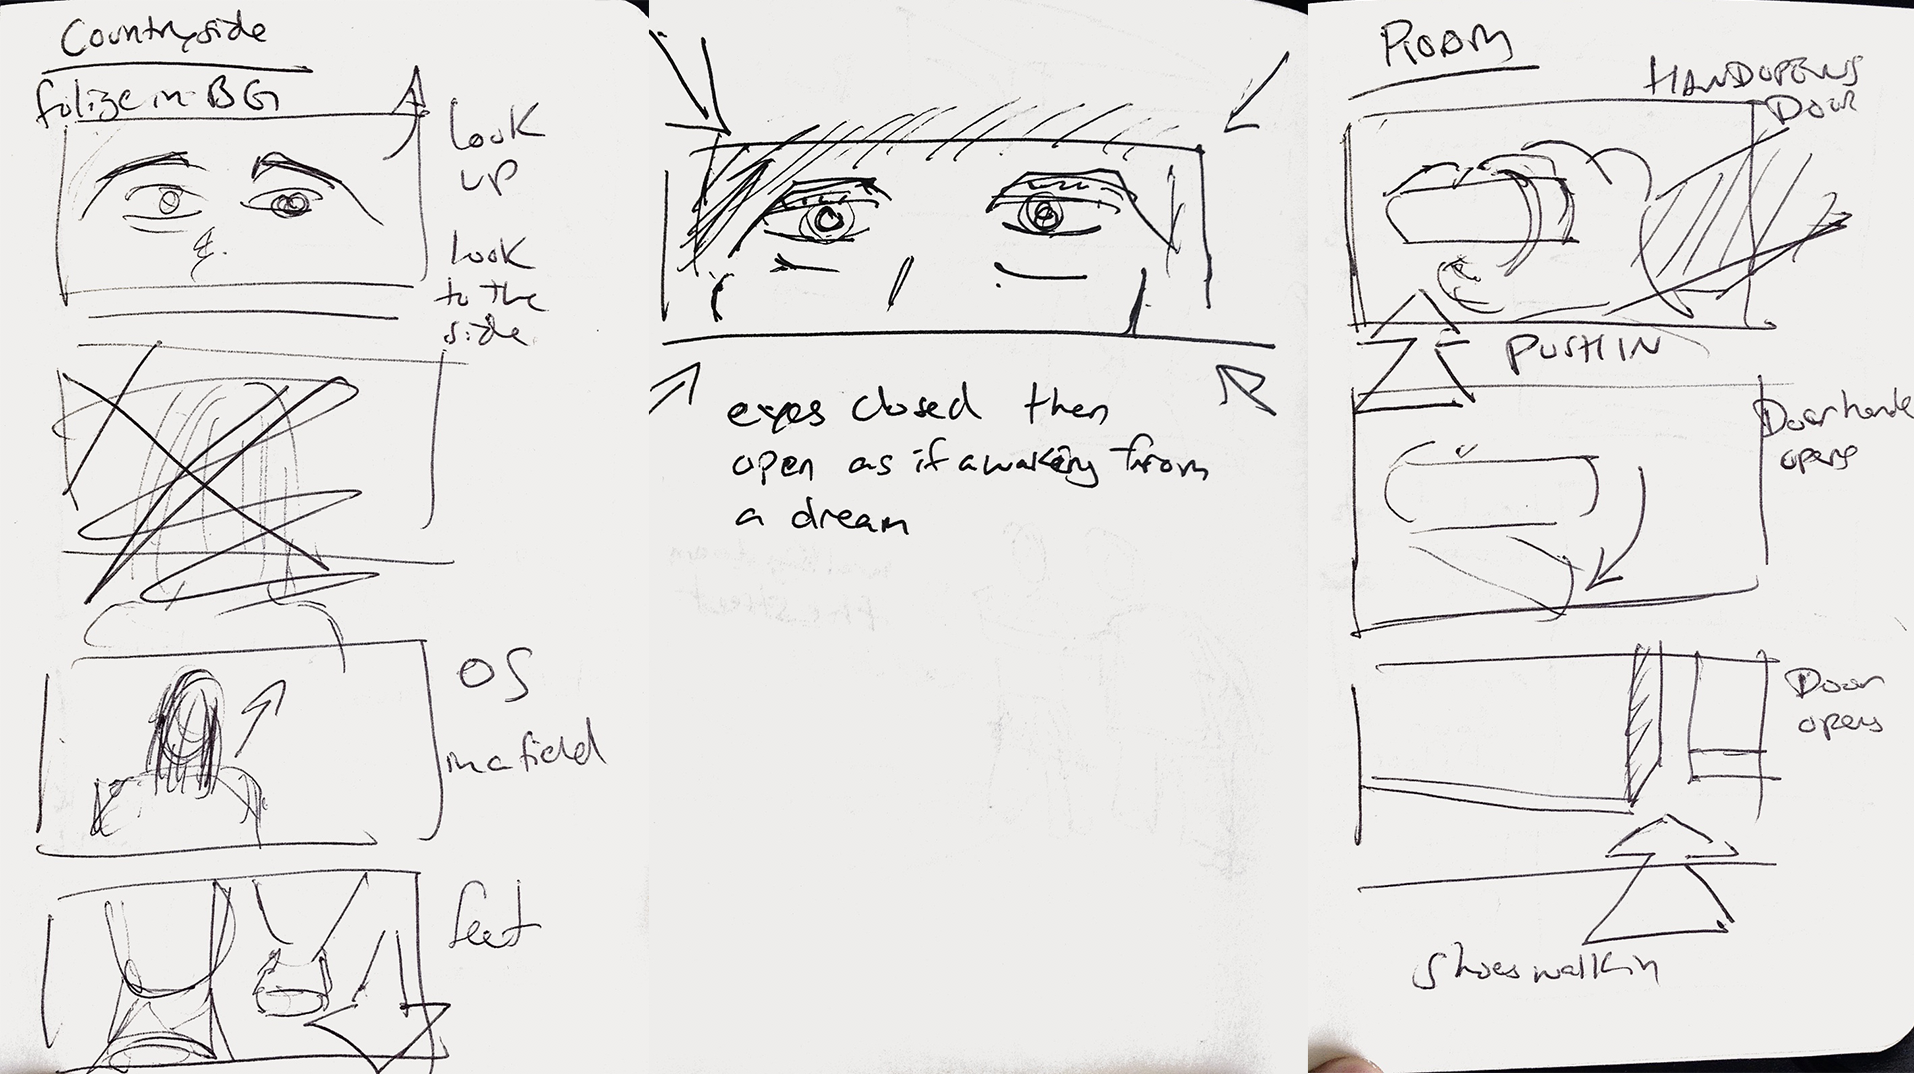 Countryside
folige in BG
look
up
look
to the
side
OS
in a field
feet
eyes closed then
open as if awaking from
a dream
ROOM
HAND OPENS
DOOR
PUSH IN
Door handle
opens
Door
opens
Shoes walk in